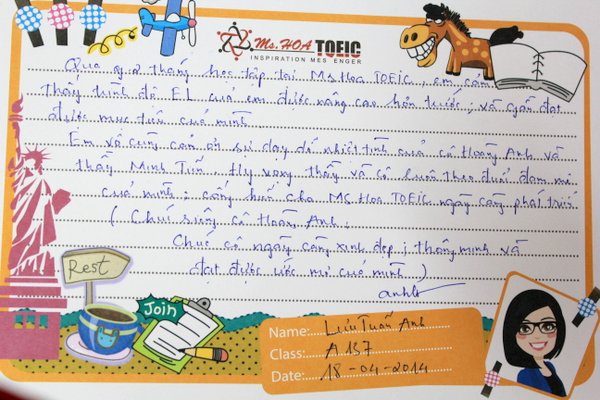 Ms.HOA TOEIC
INSPIRATION MESSENGER
Qua gần 2 tháng học tập tại Ms Hoa TOEIC, em cảm
thấy trình độ EL của em được nâng cao hơn trước; và gần đạt
được mục tiêu của mình.
Em vô cùng cảm ơn sự dạy dỗ nhiệt tình của cô Hoàng Anh và
thầy Minh Tiến. Hy vọng thầy và cô luôn theo đuổi đam mê
của mình; cống hiến cho MS Hoa TOEIC ngày càng phát triển
( Chúc riêng cô Hoàng Anh:
Chúc cô ngày càng xinh đẹp; thông minh và
đạt được ước mơ của mình )
Rest
Join
Name: Lưu Tuấn Anh
Class: A137
Date: 18-04-2014